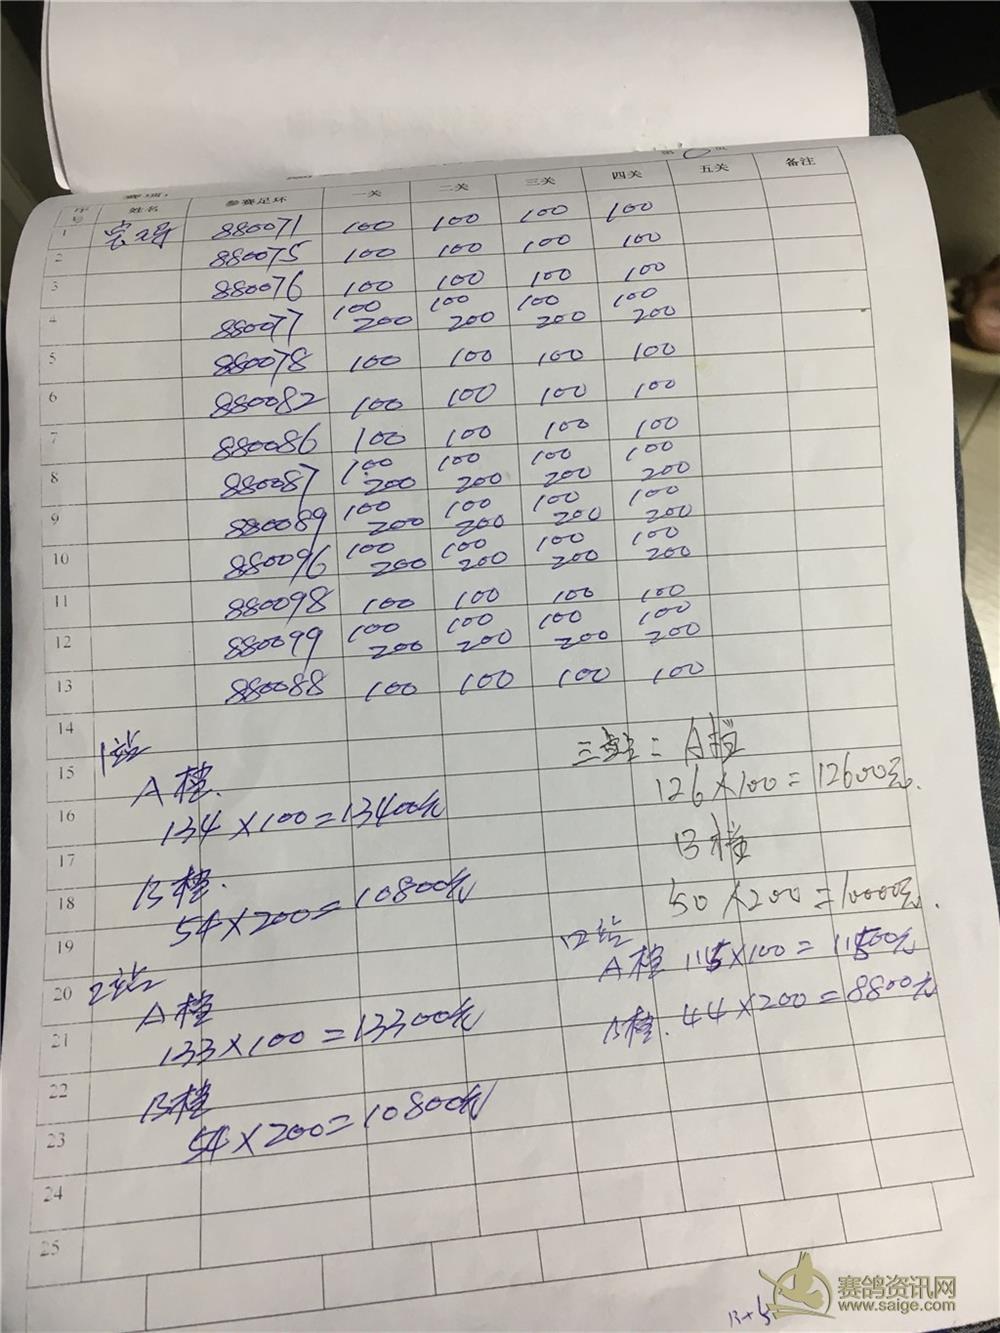 第6页
赛项:
序号 姓名 参赛足环 一关 二关 三关 四关 五关 备注
1 880071 100 100 100 100
2 880075 100 100 100 100
3 880076 100 100 100 100
4 880077 100 200 100 200 100 200 100 200
5 880078 100 100 100 100
6 880082 100 100 100 100
7 880086 100 100 100 100
8 880087 100 200 100 200 100 200 100 200
9 880089 100 200 100 200 100 200 100 200
10 880096 100 200 100 200 100 200 100 200
11 880098 100 100 100 100
12 880099 100 200 100 200 100 200 100 200
13 880088 100 100 100 100
14
15
16
17
18
19
20
21
22
23
24
25
1站
A档.
134×100=13400元
B档.
54×200=10800元
2站
A档
133×100=13300元
B档
54×200=10800元
三站:A档
126×100=12600元.
B档
50×200=10000元.
四站
A档 115×100=11500元
B档.44×200=8800元
赛鸽资讯网
www.saige.com